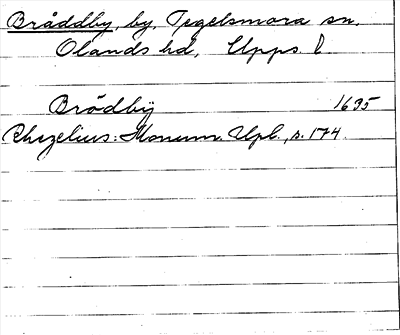 Bråddby, by, Tegelsmora sn.
Olands hd, Upps. l.
Brödbÿ 1695
Rhezelius: Monum. Upl., s. 174.